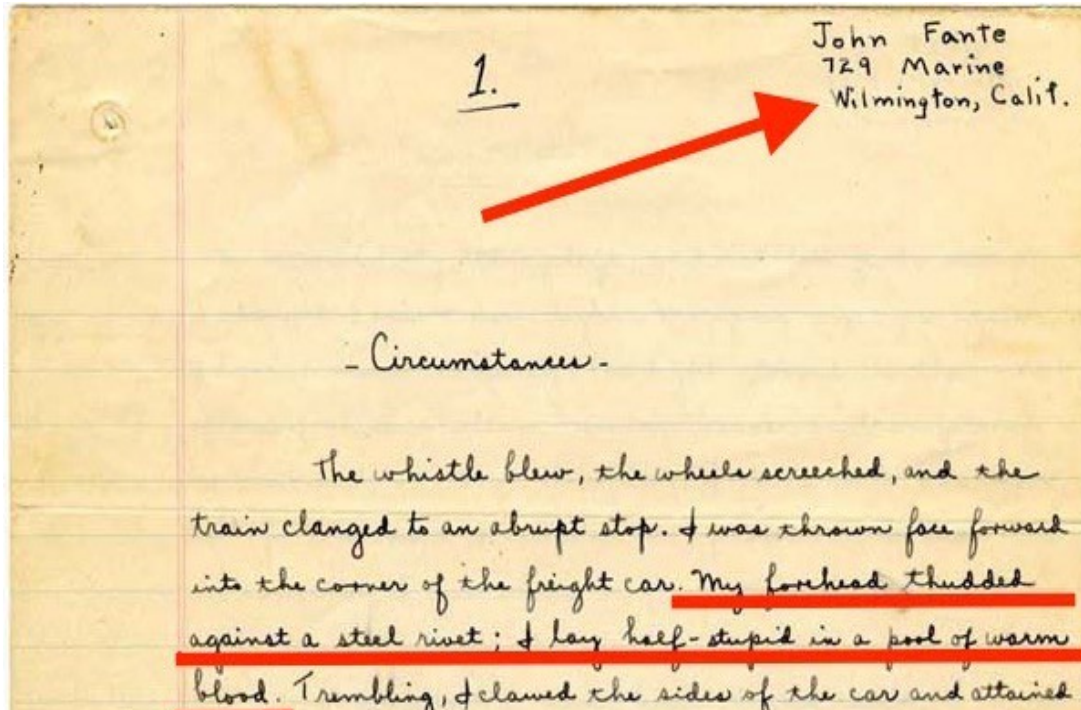 John Fante
729 Marine
Wilmington, Calif.
1.
- Circumstances -
The whistle blew, the wheels screeched, and the
train clanged to an abrupt stop. I was thrown face forward
into the corner of the freight car. My forehead thudded
against a steel rivet; I lay half-stupid in a pool of warm
blood. Trembling, I clawed the sides of the car and attained